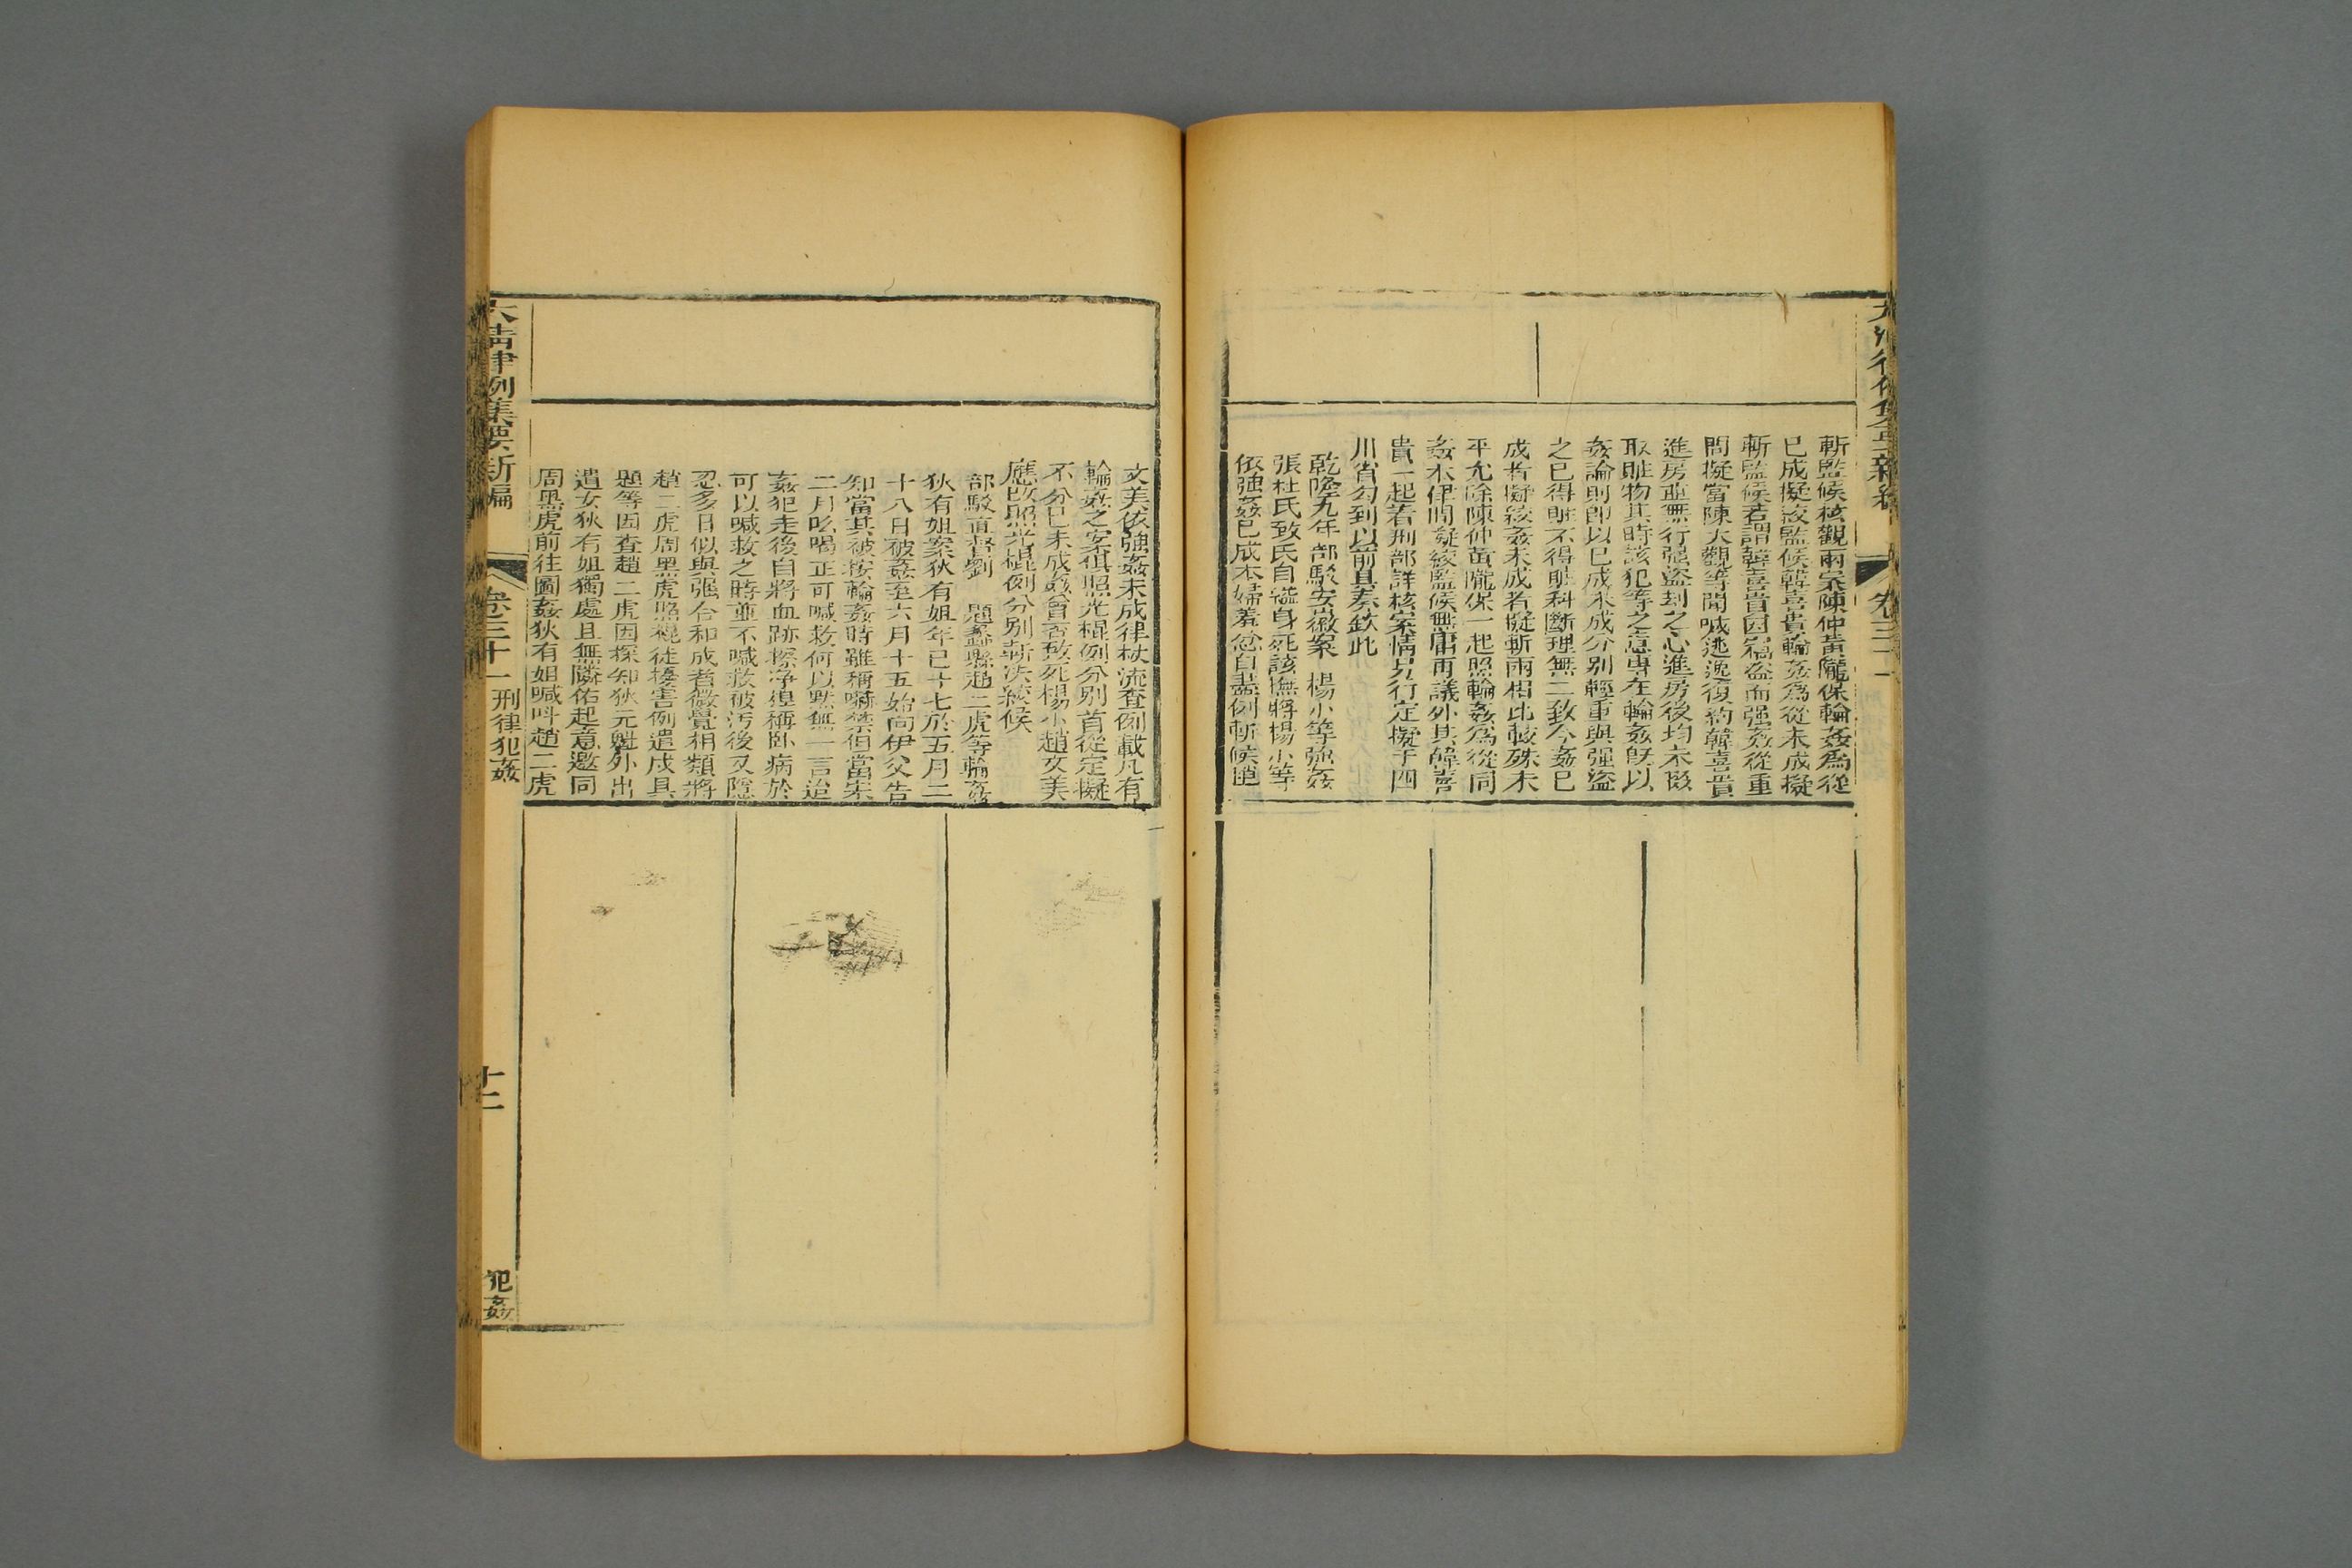 斬監候核觀兩案陳仲黃隴保輪姦爲從
已成擬絞監候韓喜貴輪姦爲從未成擬
斬監候若謂韓喜貴因竊盜而强姦從重
問擬當陳大觀等聞喊逃逸復約韓喜貴
進房並無行强盜刦之心進房後均未㪯
取賍物其時該犯等之意專在輪姦旣以
姦論則卽以已成未成分别輕重與强盜
之已得賍不得賍科斷理無二致今姦已
成者擬絞姦未成者擬斬兩相比較殊未
平允除陳仲黃隴保一起照輪姦爲從同
姦本律問擬絞監候無庸再議外其韓喜
貴一起着刑部詳核案情另行定擬于四
川省勾到以前具奏欽此
乾隆九年 部駁安徽案 楊小等强姦
張杜氏致氏自縊身死該撫將楊小等
依强姦已成本婦羞忿自盡例斬候趙
文美依强姦未成律杖流查例載凡有
輪姦之案俱照光棍例分别首從定擬
不分已未成姦曾否致死楊小趙文美
應改照光棍例分别斬決絞候
部駁直督劉 題蠡縣趙二虎等輪姦
狄有姐案狄有姐年已十七於五月二
十八日被姦至六月十五始向伊父告
知當其被按輪姦時雖稱嚇禁但當宋
二月吆喝正可喊救何以默無一言迨
姦犯走後自將血跡擦净捏稱卧病於
可以喊救之時並不喊救被汚後又隱
忍多日似與强合和成者微覺相類將
趙二虎周黑虎照棍徒擾害例遣戍具
題等因查趙二虎因探知狄元魁外出
遺女狄有姐獨處且無隣佑起意邀同
周黑虎前往圖姦狄有姐喊呌趙二虎
大清律例集要新編
卷三十一
刑律犯姦
十二
犯姦